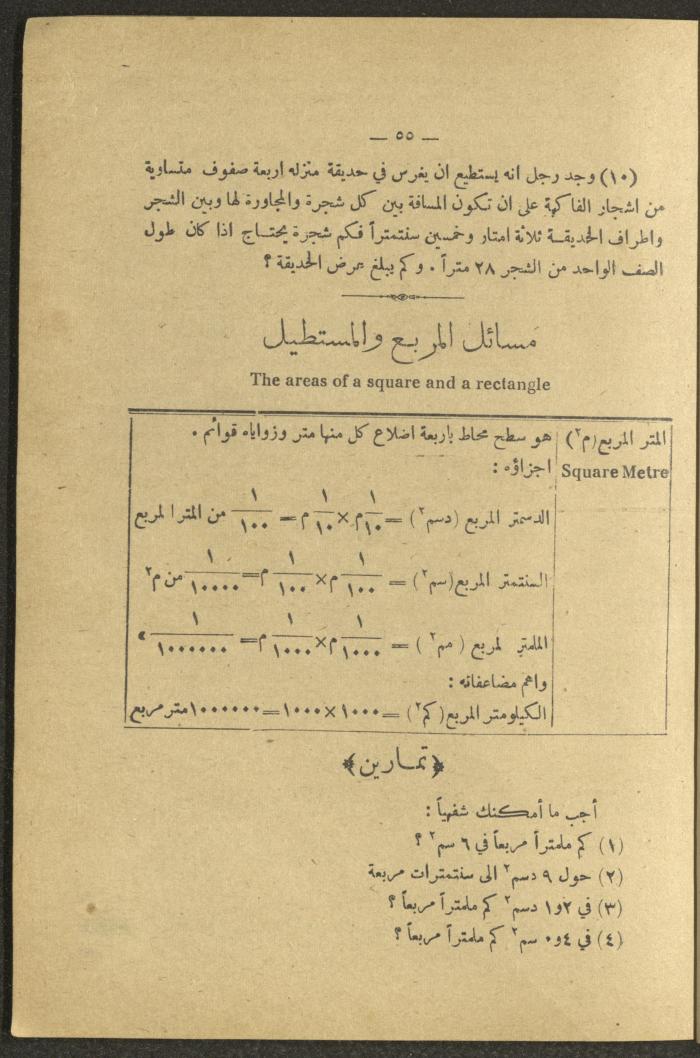 — ٥٥ —
(١٠) وجد رجل انه يستطيع ان يغرس في حديقة منزله اربعة صفوف متساوية
من اشجار الفاكهة على ان تكون المسافة بين كل شجرة والمجاورة لها وبين الشجر
واطراف الحديقة ثلاثة امتار وخمسين سنتمتراً فكم شجرة يحتاج اذا كان طول
الصف الواحد من الشجر ٢٨ متراً . وكم يبلغ عرض الحديقة ؟
مسائل المربع والمستطيل
The areas of a square and a rectangle
المتر المربع (م٢) هو سطح محاط باربعة اضلاع كل منها متر وزواياه قوائم .
Square Metre اجزاؤه :
الدسمتر المربع (دسم٢) = ١/١٠ م × ١/١٠ م = ١/١٠٠ من المتر المربع
السنتمتر المربع (سم٢) = ١/١٠٠ م × ١/١٠٠ م = ١/١٠٠٠٠ من م٢
الملمتر لمربع (مم٢) = ١/١٠٠٠ م × ١/١٠٠٠ م = ١/١٠٠٠٠٠٠ ء
واهم مضاعفاته :
الكيلومتر المربع (كم٢) = ١٠٠٠ × ١٠٠٠ = ١٠٠٠٠٠٠ متر مربع
﴿تمارين﴾
أجب ما أمكنك شفهياً :
(١) كم ملمتراً مربعاً في ٦ سم٢ ؟
(٢) حول ٩ دسم٢ الى سنتمترات مربعة
(٣) في ٢و١ دسم٢ كم ملمتراً مربعاً ؟
(٤) في ٤و٠ سم٢ كم ملمتراً مربعاً ؟